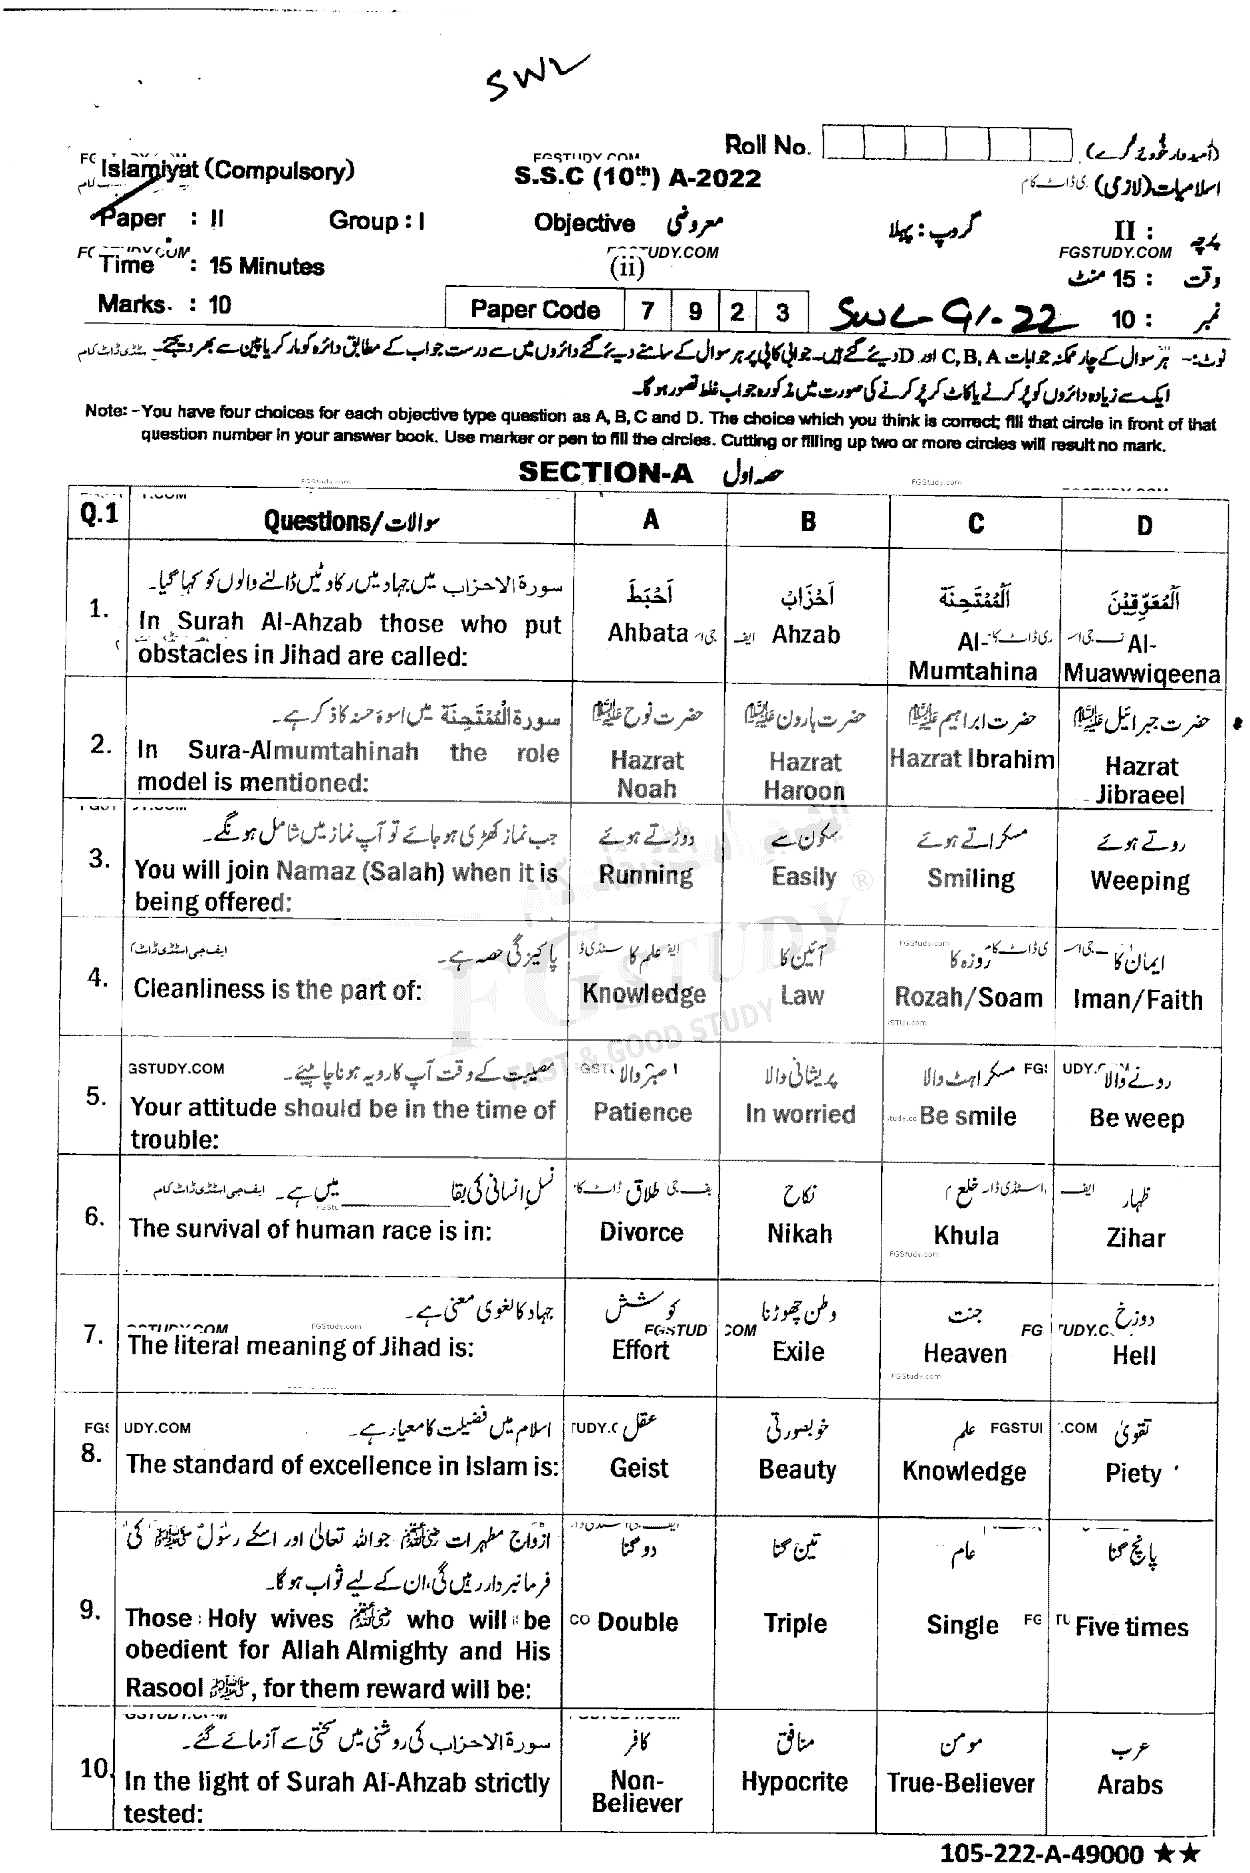 SWL
Roll No. (امیدوار خود پُر کرے)
Islamiyat (Compulsory) S.S.C (10th) A-2022 اسلامیات (لازمی)
Paper : II Group : I Objective معروضی گروپ: پہلا پرچہ : II
FGSTUDY.COM
Time : 15 Minutes (ii) وقت : 15 منٹ
Marks. : 10 Paper Code 7 9 2 3 SWL-G1-22 نمبر : 10
نوٹ:- ہر سوال کے چار ممکنہ جوابات C, B, A اور D دیئے گئے ہیں۔ جوابی کاپی پر ہر سوال کے سامنے دیئے گئے دائروں میں سے درست جواب کے مطابق دائرہ کو مارکر یا پین سے بھر دیجئے۔
ایک سے زیادہ دائروں کو پُر کرنے یا کاٹ کر پُر کرنے کی صورت میں مذکورہ جواب غلط تصور ہوگا۔
Note: - You have four choices for each objective type question as A, B, C and D. The choice which you think is correct; fill that circle in front of that
question number in your answer book. Use marker or pen to fill the circles. Cutting or filling up two or more circles will result no mark.
SECTION-A حصہ اول
Q.1 Questions/سوالات A B C D
1. سورۃ الاحزاب میں جہاد میں رکاوٹیں ڈالنے والوں کو کہا گیا۔ اَحْبَطَ اَحْزَابُ اَلْمُمْتَحِنَة اَلْمُعَوِّقِيْنَ
In Surah Al-Ahzab those who put Ahbata Ahzab Al- Al-
obstacles in Jihad are called: Mumtahina Muawwiqeena
2. سورۃ الْمُمْتَحِنَة میں اسوۂ حسنہ کا ذکر ہے۔ حضرت نوح حضرت ہارون حضرت ابراہیم حضرت جبرائیل
In Sura-Almumtahinah the role Hazrat Hazrat Hazrat Ibrahim Hazrat
model is mentioned: Noah Haroon Jibraeel
3. جب نماز کھڑی ہو جائے تو آپ نماز میں شامل ہونگے۔ دوڑتے ہوئے سکون سے مسکراتے ہوئے روتے ہوئے
You will join Namaz (Salah) when it is Running Easily Smiling Weeping
being offered:
FGSTUDY
FAST & GOOD STUDY
4. پاکیزگی حصہ ہے۔ علم کا آئین کا روزہ کا ایمان کا
Cleanliness is the part of: Knowledge Law Rozah/Soam Iman/Faith
5. مصیبت کے وقت آپ کا رویہ ہونا چاہیئے۔ صبر والا پریشانی والا مسکراہٹ والا رونے والا
Your attitude should be in the time of Patience In worried Be smile Be weep
trouble:
6. نسلِ انسانی کی بقا ________ میں ہے۔ طلاق نکاح خلع ظہار
The survival of human race is in: Divorce Nikah Khula Zihar
7. جہاد کا لغوی معنی ہے۔ کوشش وطن چھوڑنا جنت دوزخ
The literal meaning of Jihad is: Effort Exile Heaven Hell
8. اسلام میں فضیلت کا معیار ہے۔ عقل خوبصورتی علم تقویٰ
The standard of excellence in Islam is: Geist Beauty Knowledge Piety
9. ازواج مطہرات جو اللہ تعالیٰ اور اسکے رسول ﷺ کی دوگنا تین گنا عام پانچ گنا
فرمانبردار رہیں گی، ان کے لیے ثواب ہوگا۔
Those Holy wives who will be Double Triple Single Five times
obedient for Allah Almighty and His
Rasool ﷺ, for them reward will be:
10. سورۃ الاحزاب کی روشنی میں سختی سے آزمائے گئے۔ کافر منافق مومن عرب
In the light of Surah Al-Ahzab strictly Non- Hypocrite True-Believer Arabs
tested: Believer
105-222-A-49000 ★★